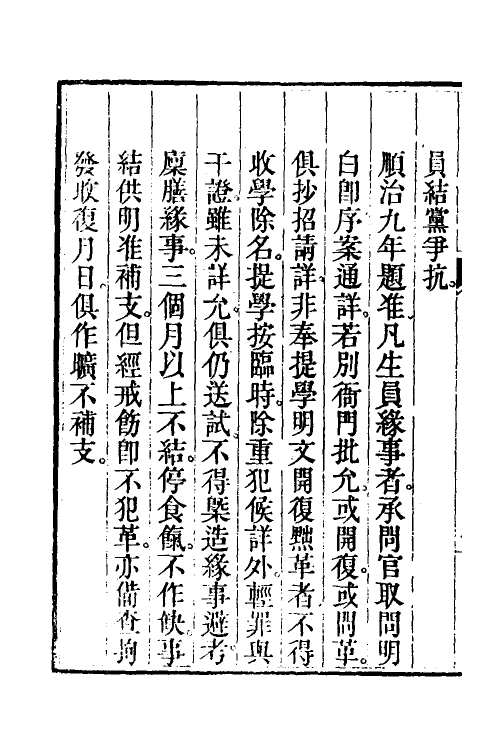 員結黨爭抗。
順治九年題准凡生員緣事者。承問官取問明
白卽序案通詳。若別衙門批允。或開復。或問革。
俱抄招請詳。非奉提學明文開復黜革者不得
收學除名。提學按臨時。除重犯候詳外。輕罪與
干證。雖未詳允。俱仍送試。不得槩造緣事避考。
廩膳緣事。三個月以上不結。停食餼。不作缺。事
結供明准補支。但經戒飭卽不犯革。亦備查拘
發收復月日。俱作曠不補支。